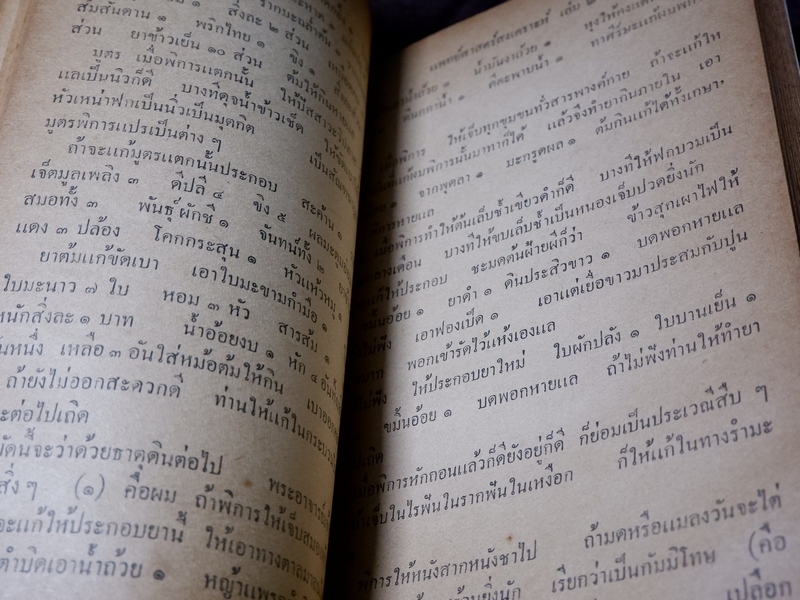 สมสันดาน ๑ พริกไทย ๑ สิ่งละ ๒ ส่วน
ส่วน ยาข้าวเย็น ๑๐ ส่วน ขิง ๑
มูตร เมื่อพิการแตกนั้น ต้มให้กินหาย
แลเป็นนิ่วก็ดี บางทีดุจน้ำข้าวเช็ด ให้ปัสสาวะ
หัวเหน่าฟกเป็นนิ่วเป็นมุตกิด
มูตรพิการแปรเป็นต่าง ๆ
ถ้าจะแก้มูตรแตกนั้นประกอบ สะค้าน ๑
เจ็ตมูลเพลิง ๓ ดีปลี ๔ ขิง ๕
สมอทั้ง ๓ พันธุ์ผักชี ๑ จันทน์ทั้ง ๒
แดง ๓ ปล้อง โคกกระสุน ๑ หัวแห้วหมู
ยาต้มแก้ขัดเบา เอาใบมะขามกำมือ ๑
ใบมะนาว ๗ ใบ หอม ๓ หัว สารส้ม ๑
หนักสิ่งละ ๑ บาท น้ำอ้อยงบ ๑ หัก ๔
เหลือ ๓ อันใส่หม้อต้มให้กิน
ถ้ายังไม่ออกสะดวกดี ท่านให้แก้ในกระบวน
ต่อไปเถิด
จะว่าด้วยธาตุดินต่อไป พระอาจารย์
สิ่ง ๆ (๑) คือผม ถ้าพิการให้เจ็บสมอง
จะแก้ให้ประกอบยานี้ ให้เอาทางตาล
เอาน้ำถ้วย ๑ หญ้าแพรก
แพทย์ศาสตร์สงเคราะห์ เล่ม ๒
น้ำมันงาถ้วย ๑ หุงให้คง
ดีตะพาบน้ำ ๑ ทาศีร์มะแลผม
ให้เจ็บทุกขุมขนทั่วสารพางค์กาย ถ้าจะแก้ให้
แก้ผมพิการนั้นมาทาก็ได้ แล้วจึงทำยากินภายใน เอา
จากพุตลา ๑ มะกรูดผล ๑ ต้มกินแก้ได้ทั้งเกษา.
หายแล
พิการทำให้ต้นเล็บช้ำเขียวดำก็ดี บางทีให้ฟกบวมเป็น
บางทีให้ขบเล็บช้ำเป็นหนองเจ็บปวดยิ่งนัก
แก้ให้ประกอบ ชะมดต้นฝ้ายผีก็ว่า ข้าวสุกเผาไฟให้
ขมิ้นอ้อย ๑ ยาดำ ๑ ดินประสิวขาว ๑ บดพอกหายแล
ไม่ฟัง เอาฟองเป็ด ๑ เอาแต่เยื่อขาวมาประสมกับปูน
พอกเข้ารัดไว้แห้งเองแล
ไม่ฟัง ให้ประกอบยาใหม่ ใบผักปลัง ๑ ใบบานเย็น ๑
ขมิ้นอ้อย ๑ บดพอกหายแล ถ้าไม่ฟังท่านให้ทำยา
เถิด
พิการหักถอนแล้วก็ดียังอยู่ก็ดี ก็ย่อมเป็นประเวณีสืบ ๆ
เจ็บในไรฟันในรากฟันในเหงือก ก็ให้แก้ในทางรำมะ
พิการให้หนังสากหนังชาไป ถ้ามดหรือแมลงวันจะไต่
ยิ่งนัก เรียกว่าเป็นกัมมิโทษ (คือ
เปลือก